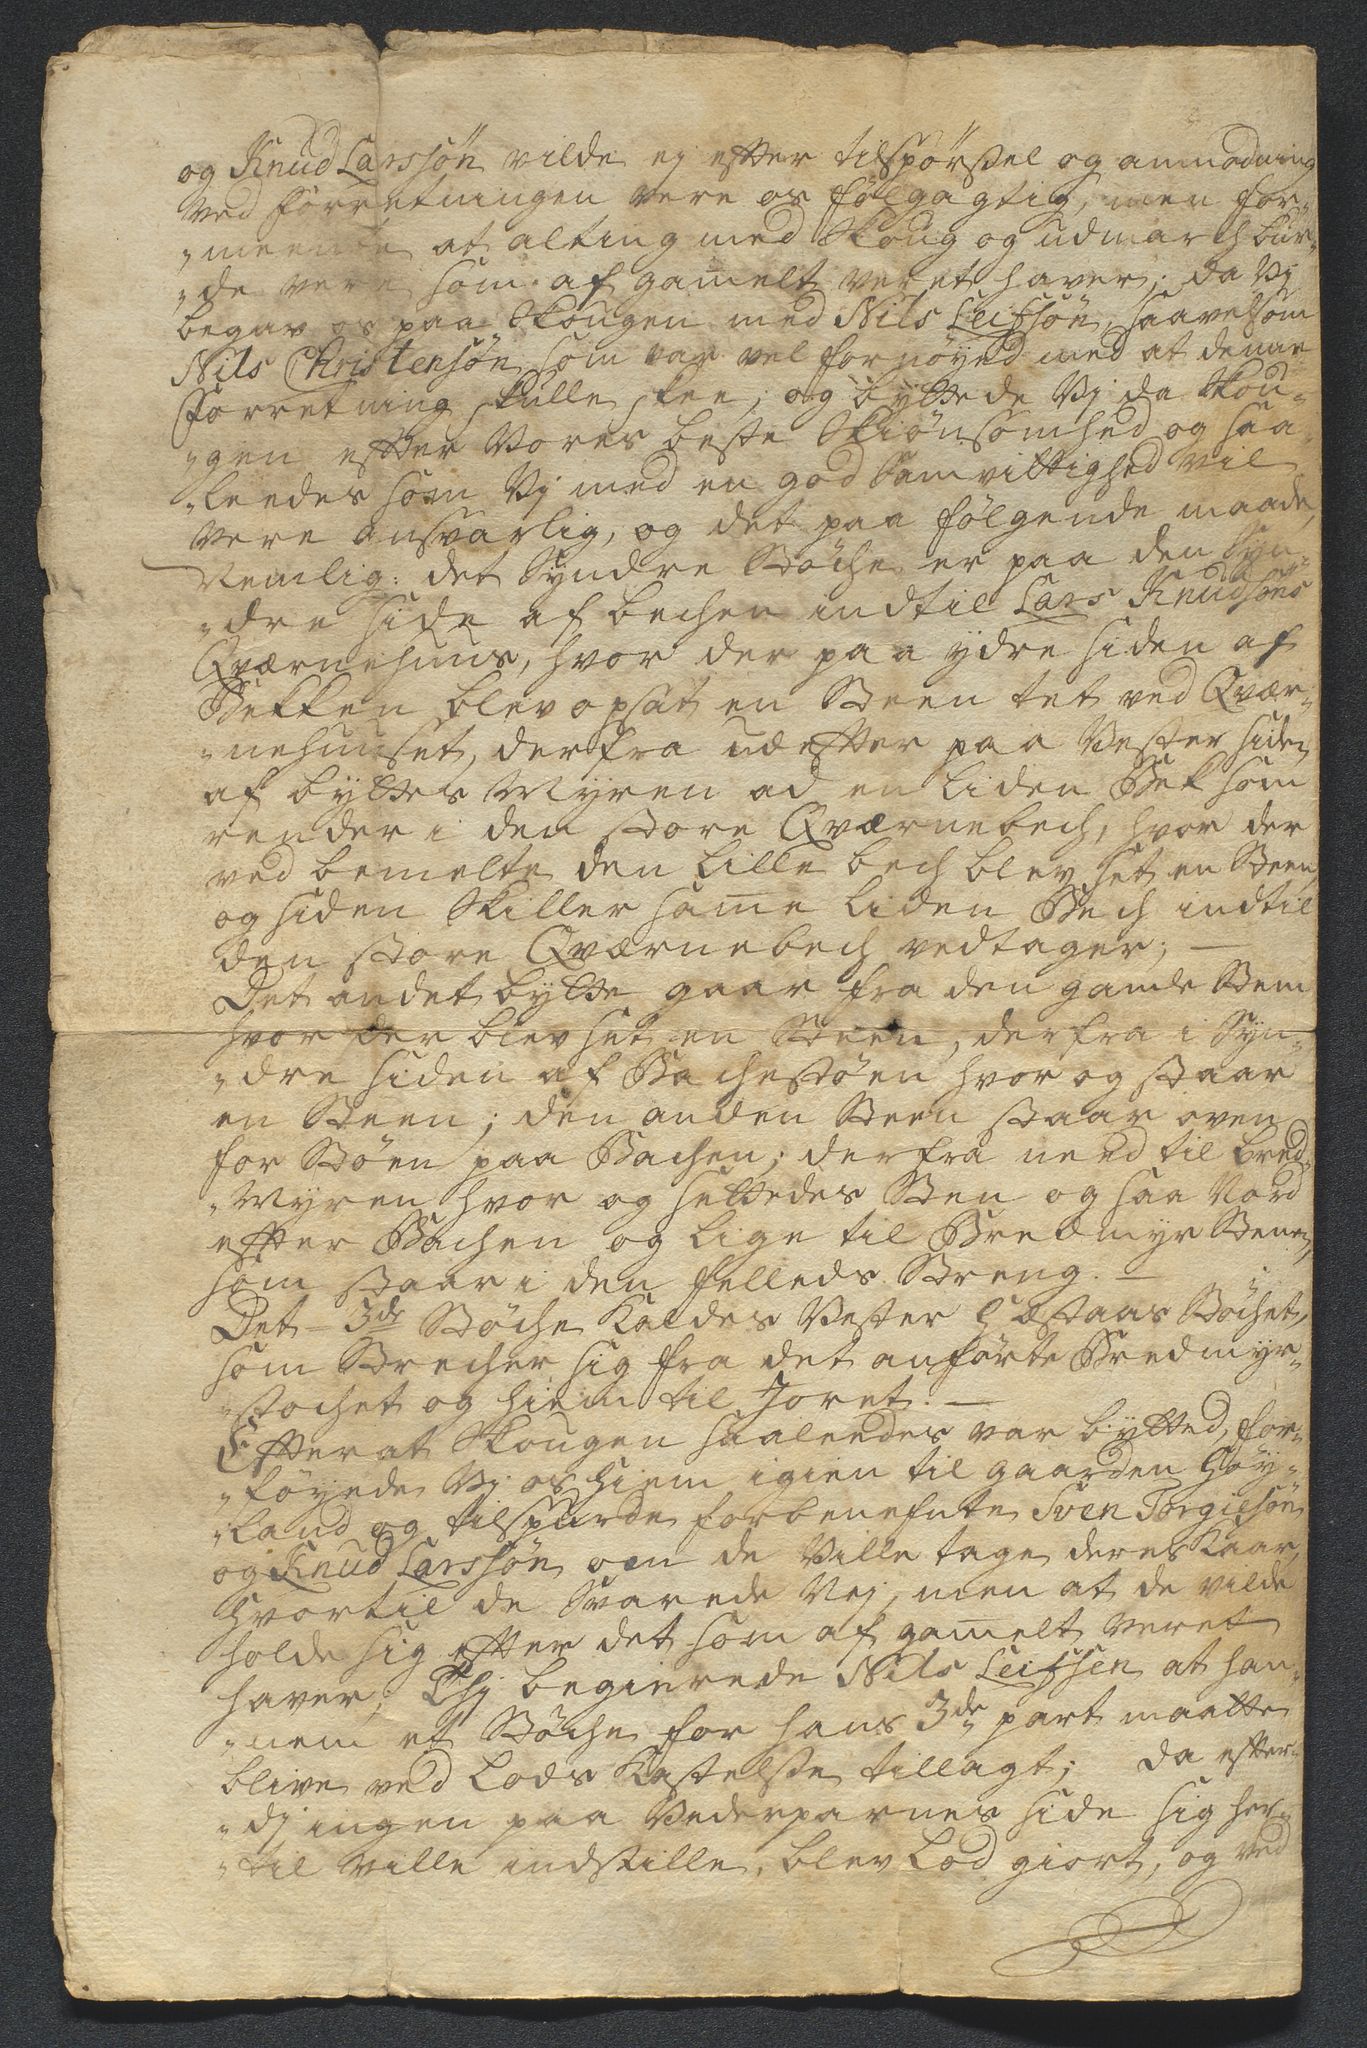 og Knud Larssøn vilde ej efter tilspørsel og anmodning
ved Forretningen vere os følgagtig, men for-
„meente at alting med Skoug og udmarch bur-
„de vere som af gamelt veret haver; da Vj
begav os paa Skougen med Nils Leifsøn, saavelsom
Nils Christensøn som var vel fornøyed med at denne
Forretning skulle skee; og byttede Vj da Skou-
„gen efter Vores beste Skiønsomhed og saa-
„leedes som Vj med en god Samvittighed vil
vere ansvarlig, og det paa følgende maade,
Nemlig: det Syndre Støche er paa den Syn-
„dre side af bechen indtil Lars Knudsøns
Qværnehuus, hvor der paa ydre siden af
Bekken blev opsat en Steen tet ved Qvær-
„nehuuset, derfra udefter paa Vester siden
af byttes Myren ad en liden Bek som
render i den store Qværnebech, hvor der
ved bemelte den lille bech blev set en Steen,
og siden Skiller same liden Bech indtil
den store Qværnebech vedtager; —
Det andet bytte gaar fra den gamle Stem
hvor der blev set en Steen, derfra i Syn-
„dre siden af Bachestøen hvor og staar
en Steen; den anden Steen staar oven
for Støen paa Bachen; derfra need til bred-
„Myren hvor og settedes Sten og saa Nord
efter Bachen og lige til Bredmyr Stenen,
som staar i den felleds Streng. —
Det 3de Støche Kaldes Vester Hestaas Støchet,
som Strecher sig fra det anførte Bredmyr-
„støchet og hiem til Joret. —
Efter at Skougen saaleedes var bytted, for-
„føyede Vj os hiem igien til gaarden Høy-
„land og tilspurde forbenefnte Sven Torgilsøn
og Knud Larssøn om de Ville tage deres Kaar,
hvortil de Svarede Nej, men at de vilde
holde sig efter det som af gamelt veret
haver; Thj begierede Nils Leifsen at han-
„nem et Støche for hans 3de part maatte
blive ved Lods Kastelse tillagt; da efter-
„dj ingen paa Vederparnes side sig her-
„til ville indstille, blev Lod giort, og ved